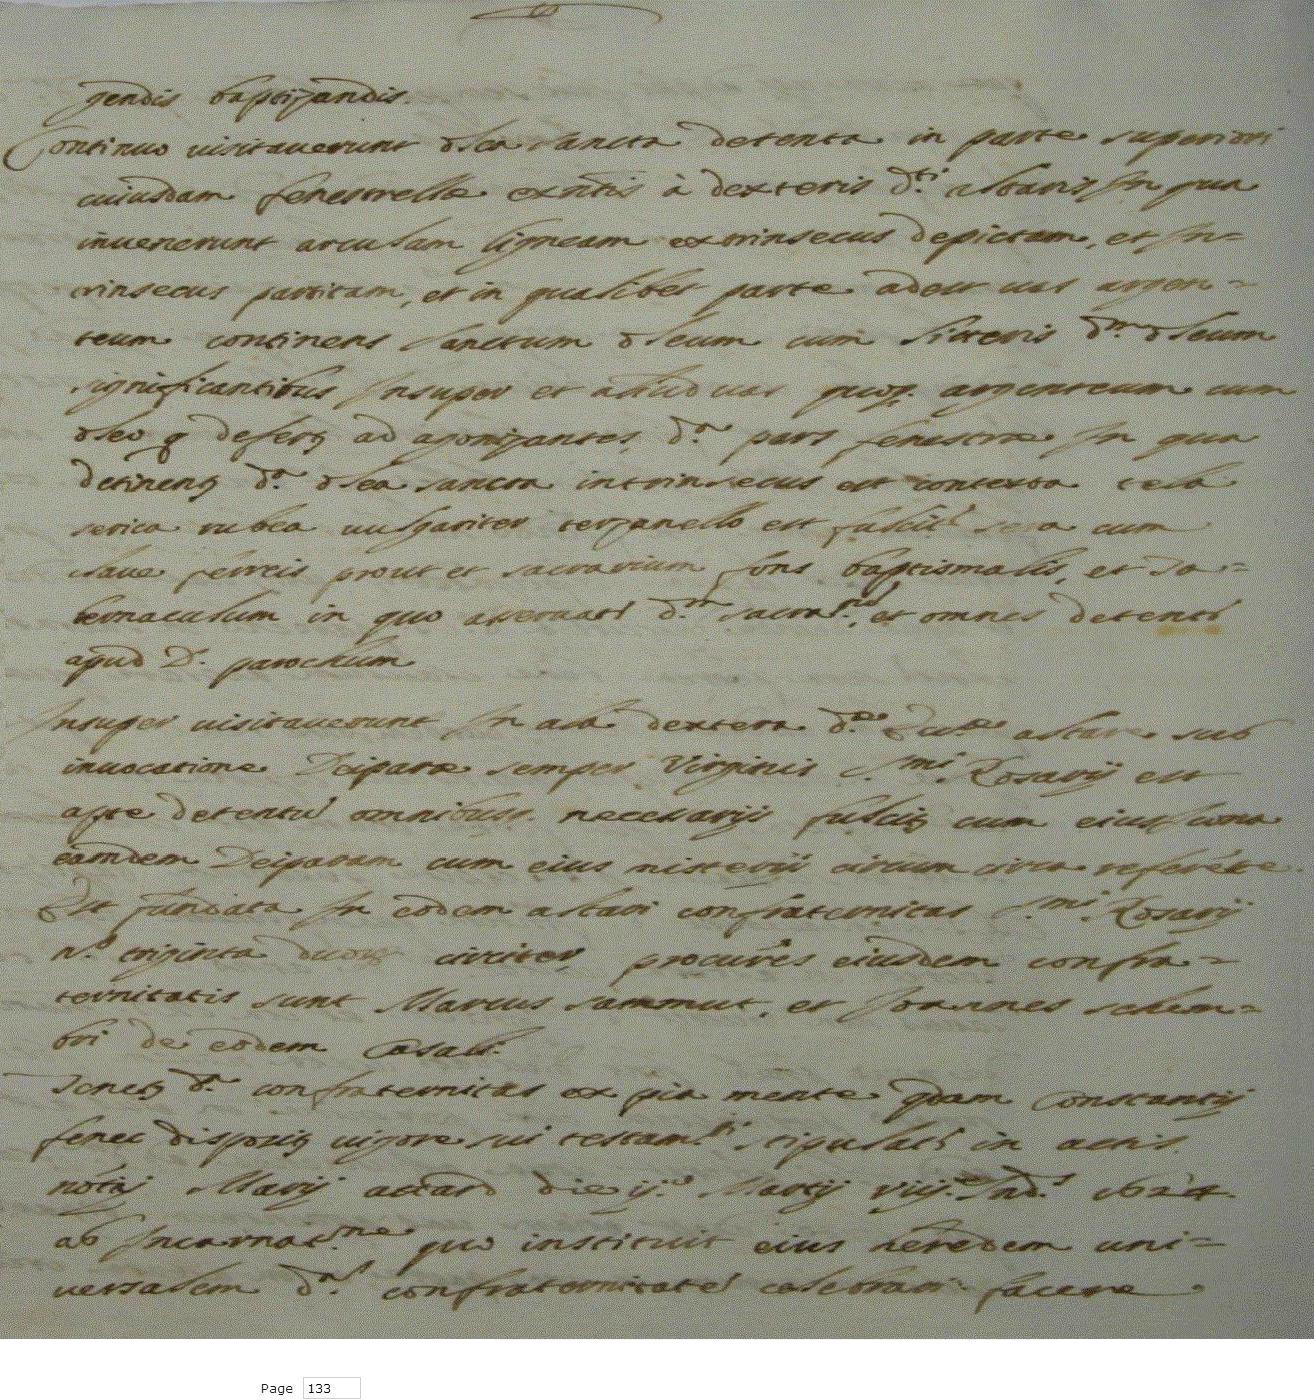 gendis baptizandis.
Continuo uisitauerunt olea sancta detenta in parte superiori
cuiusdam fenestrellæ exntis à dexteris d.ti altaris In qua
inuenerunt arculam ligneam extrinsecus depictam, et In=
trinsecus partitam, et in qualibet parte adest uas argen=
teum continens sanctum oleum cum litteris d.m oleum
significantibus Insuper et aliud uas quoq. argenteum cum
oleo q defertq ad agonizantes, d.a pars fenestræ In qua
detinentq d.a olea sancta intrinsecus est contexta tela
serica rubea uulgariter terzanello est sera cum
claue ferreis prout et sacrarium fons baptismalis, et Ta=
bernaculum in quo d.m sacra.m, et omnes
apud D. parochum
Insuper uisitauerunt In ala dextera d.æ altare sub
inuocatione Deiparæ semper Virginis S.mi Rosarij est
apte omnibus. necessarijs cum eius Icona
eamdem Deiparam cum eius misterijs circum circa referẽte.
Est fundata In eodem altari confraternitas S.mi Rosarij
n.o triginta circiter, procur̃es eiusdem confra=
ternitatis sunt Marcus sammut, et Joannes schem=
bri de eodem Casali.
Tenetq d.a confraternitas ex pia mente qdam Constantij
fenec uigore sui testam.ti in actis.
notãj Marij attard die ij.a Martij viij.æ Ind.s 1624.
ab Incarnat.ne quo instituit eius heredem uni=
uersalem d.a confraternitate celebrari facere